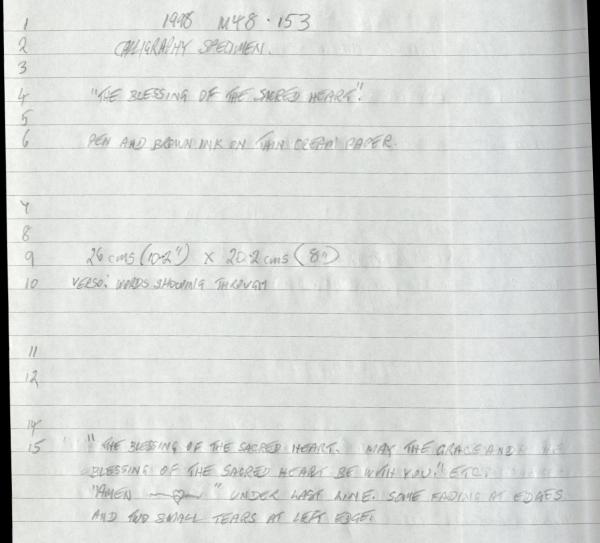 1 1998 M48.153
2 CALLIGRAPHY SPECIMEN.
3
4 "THE BLESSING OF THE SACRED HEART".
5
6 PEN AND BROWN INK ON THIN CREAM PAPER.
7
8
9 26 cms (10.2") X 20.2 cms (8")
10 VERSO: WORDS SHOWING THROUGH
11
12
14
15 "THE BLESSING OF THE SACRED HEART. MAY THE GRACE AND
BLESSING OF THE SACRED HEART BE WITH YOU." ETC.
"AMEN " UNDER LAST LINE. SOME FADING AT EDGES
AND TWO SMALL TEARS AT LEFT EDGE.